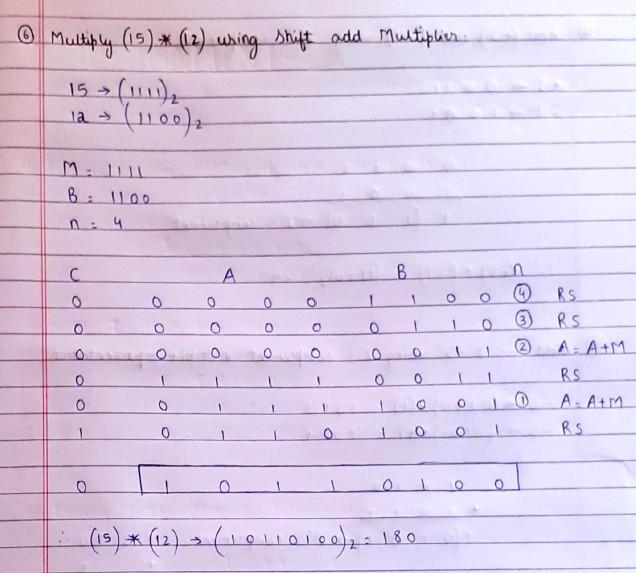 ⑥ Multiply (15) * (12) using shift add Multiplier.
15 → (1111)₂
12 → (1100)₂
M = 1111
B = 1100
n = 4
C A B n
0 0 0 0 0 1 1 0 0 ④ RS
0 0 0 0 0 0 1 1 0 ③ RS
0 0 0 0 0 0 0 1 1 ② A = A+M
0 1 1 1 1 0 0 1 1 RS
0 0 1 1 1 1 0 0 1 ① A = A+M
1 0 1 1 0 1 0 0 1 RS
0 1 0 1 1 0 1 0 0
∴ (15) * (12) → (10110100)₂ = 180